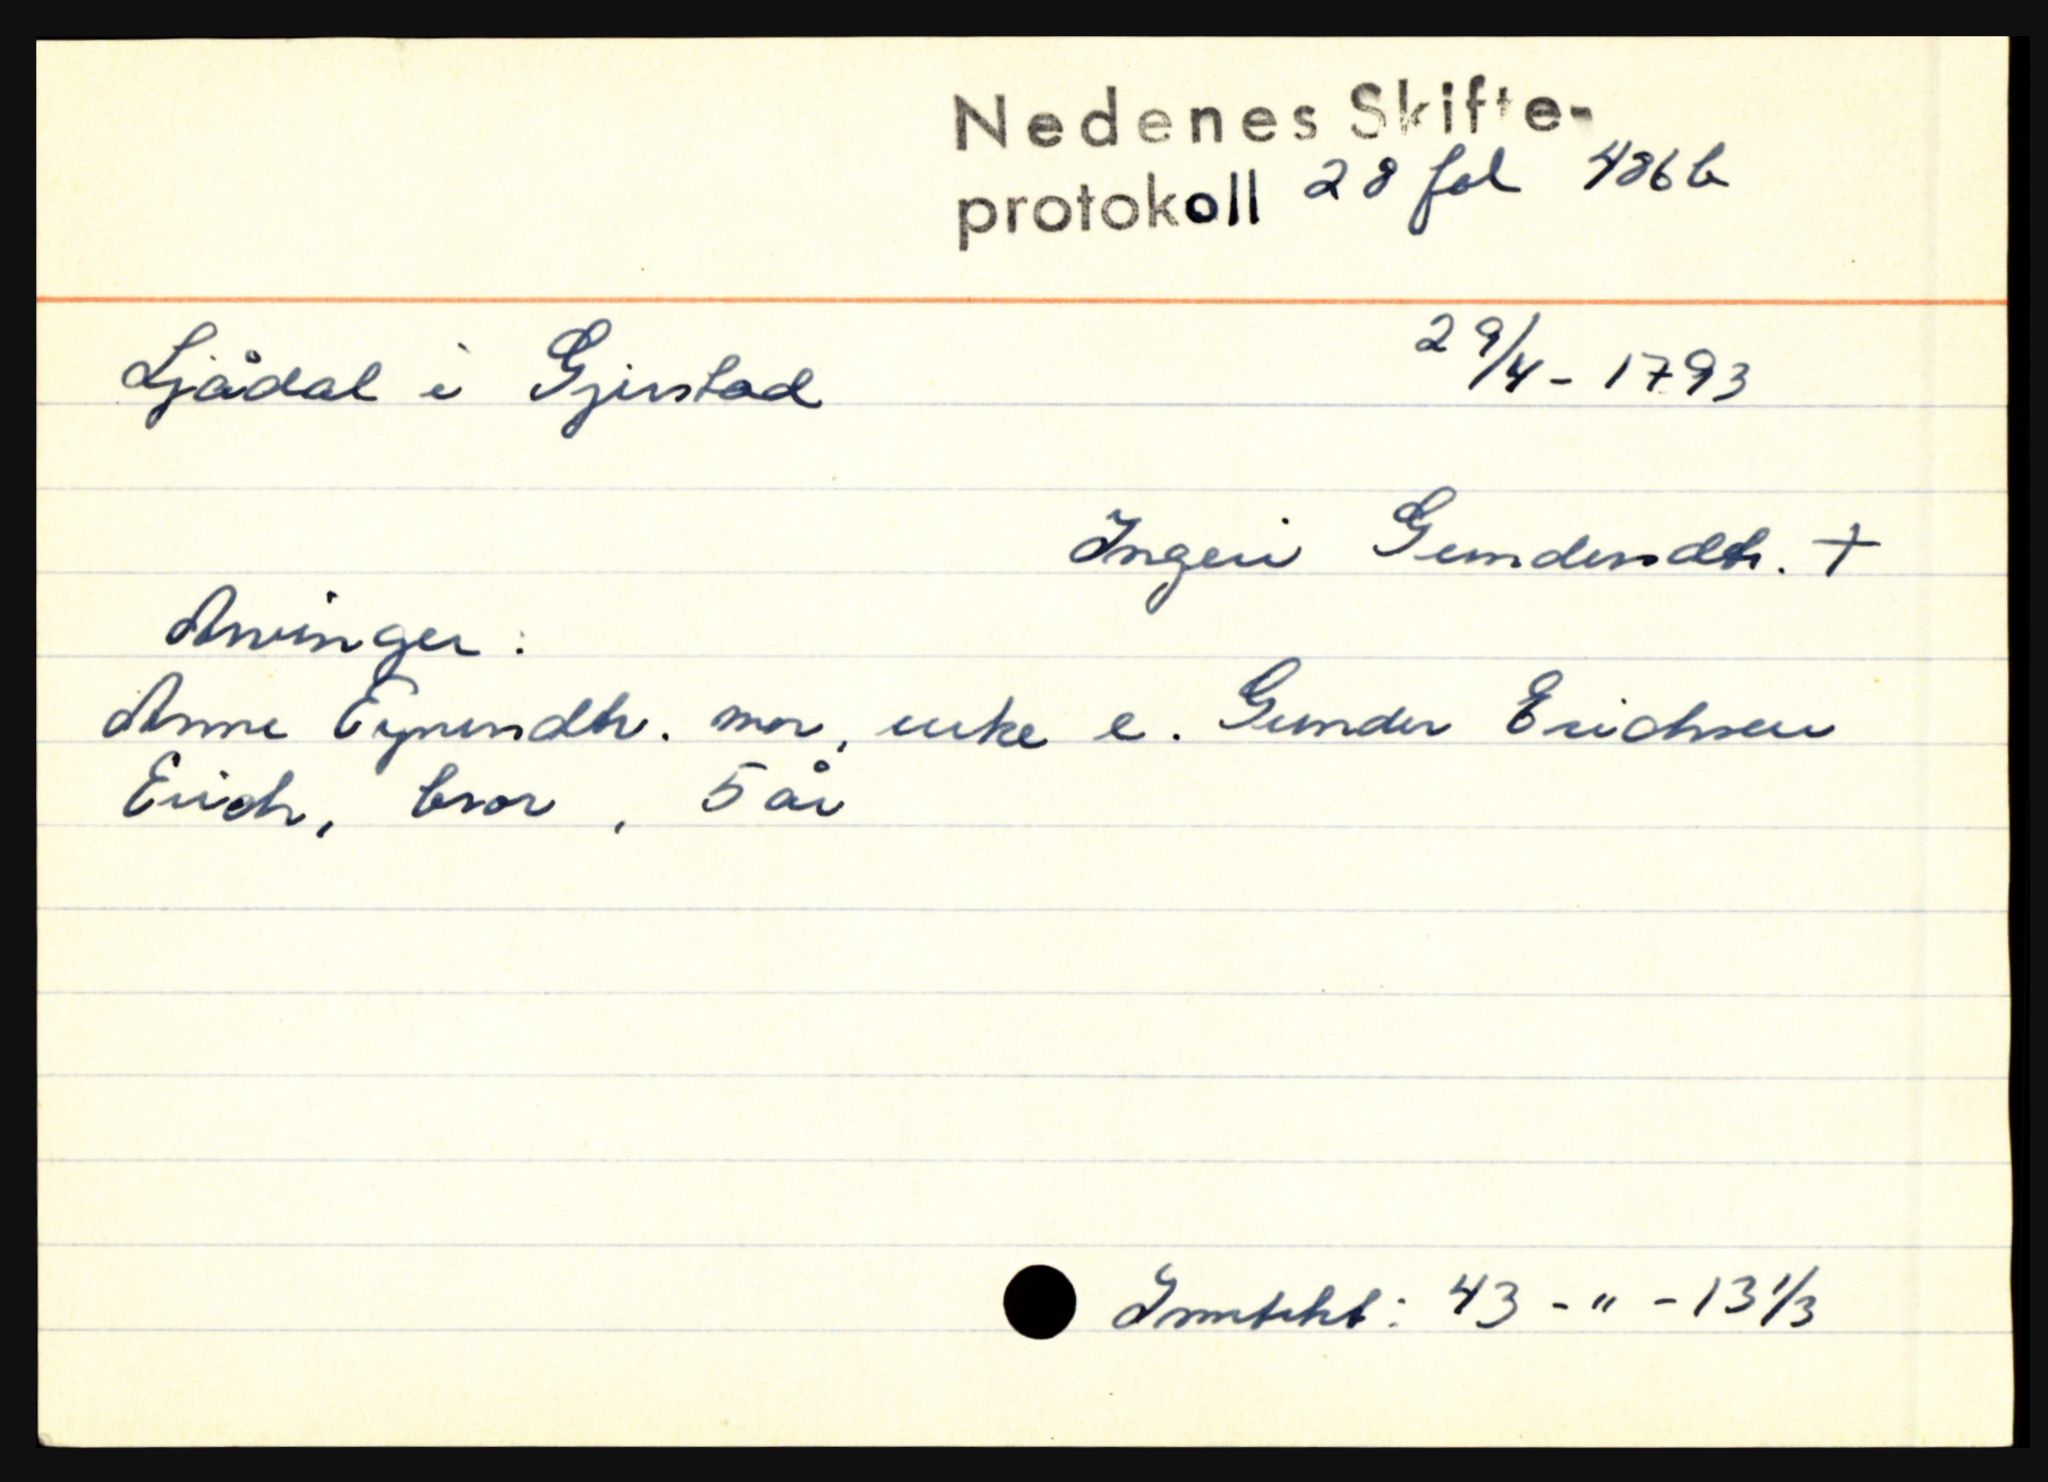 Nedenes Skifte-
protokoll 28 fol 486 b
Ljådal i Gjerstad 29/4 - 1793
Ingeri Gundersdtr. +
Arvinger:
Anne Eyvindsdtr. mor, enke e. Gunder Erichsen
Erich, bror, 5 år
Inntekt: 43 - " - 13 1/3